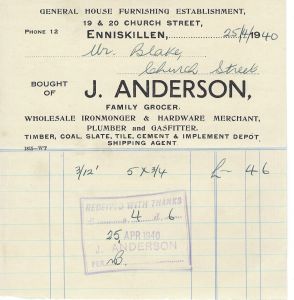 GENERAL HOUSE FURNISHING ESTABLISHMENT,
19 & 20 CHURCH STREET,
PHONE 12
ENNISKILLEN, 25/4/1940
Mr. Blake,
Church Street
BOUGHT OF J. ANDERSON,
FAMILY GROCER.
WHOLESALE IRONMONGER & HARDWARE MERCHANT,
PLUMBER and GASFITTER.
TIMBER, COAL, SLATE, TILE, CEMENT & IMPLEMENT DEPOT
SHIPPING AGENT
3/12' 5 x 3/4 £- 4 6
RECEIVED WITH THANKS
4 6
25 APR 1940
J. ANDERSON
PER